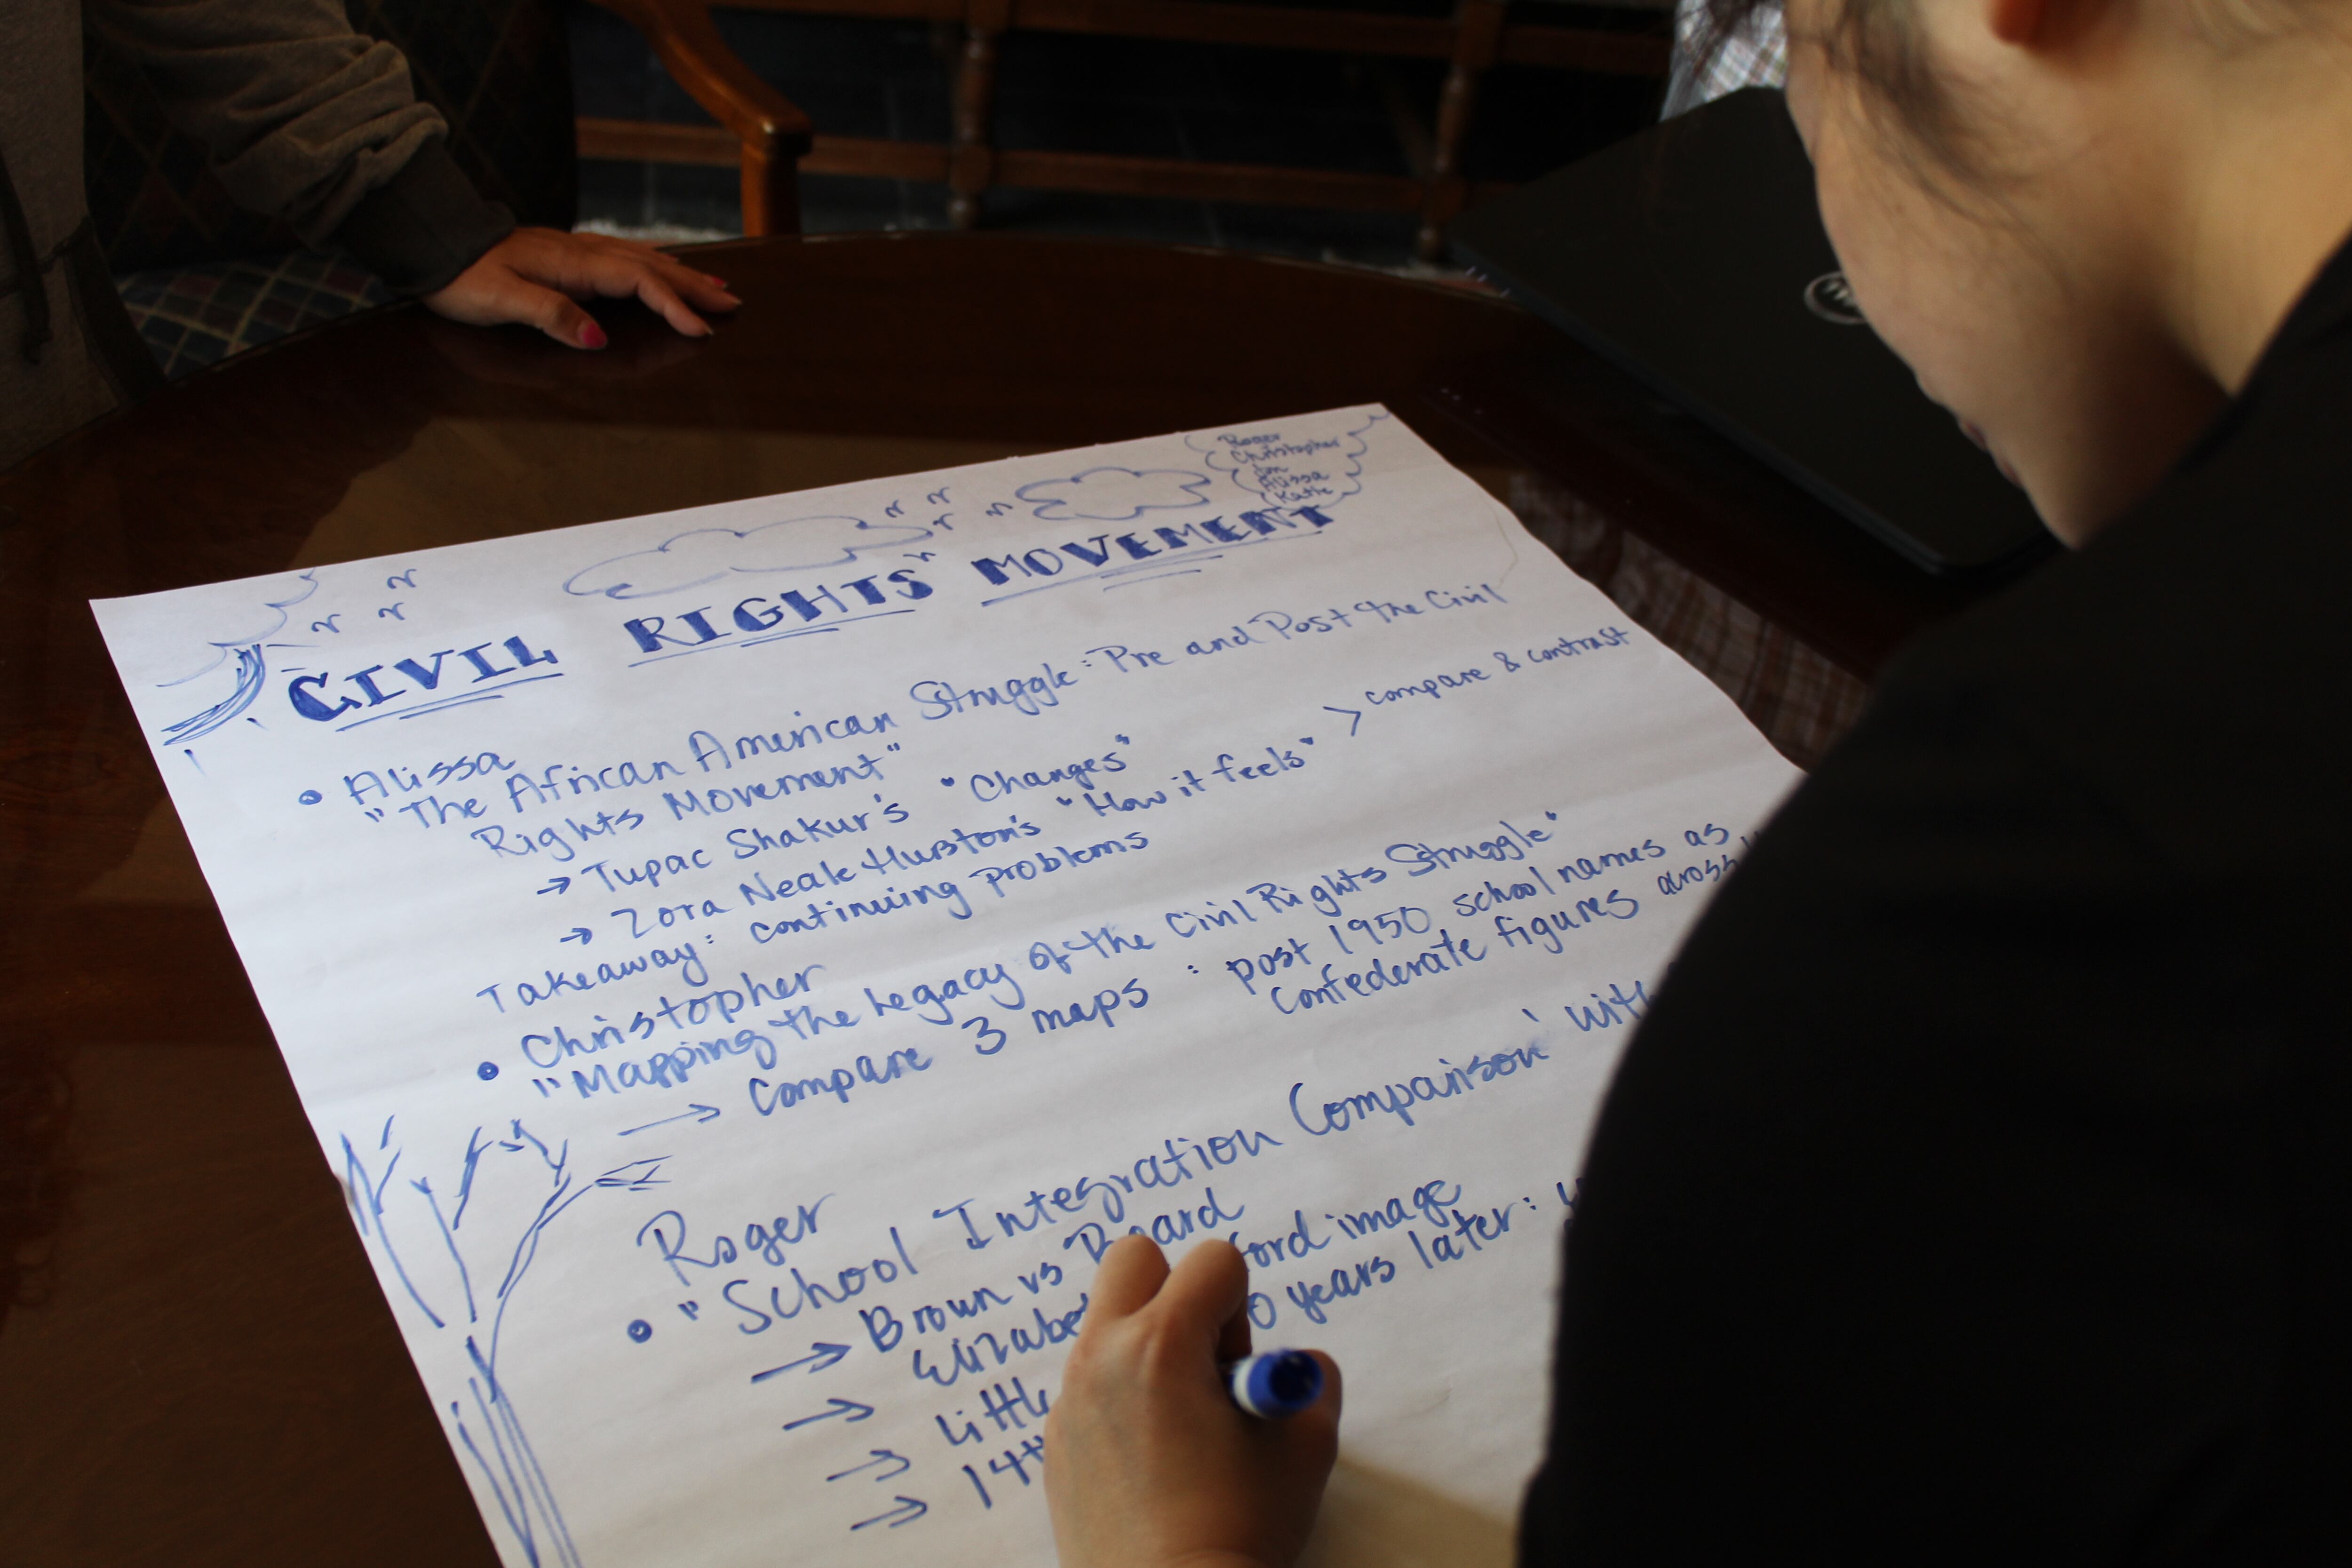 Roger
Christopher
Jon
Alissa
Katie
CIVIL RIGHTS" MOVEMENT
• Alissa
"The African American Struggle: Pre and Post the Civil
Rights Movement"
→ Tupac Shakur's "Changes"
→ Zora Neale Hurston's "How it feels" > compare & contrast
Takeaway: continuing problems
• Christopher
"Mapping the Legacy of the Civil Rights Struggle"
→ Compare 3 maps : post 1950 school names as
Confederate figures across
Roger
• "School Integration Comparison" with
→ Brown vs Board
→ Elizabe ford image
→ Little 0 years later:
→ 14th